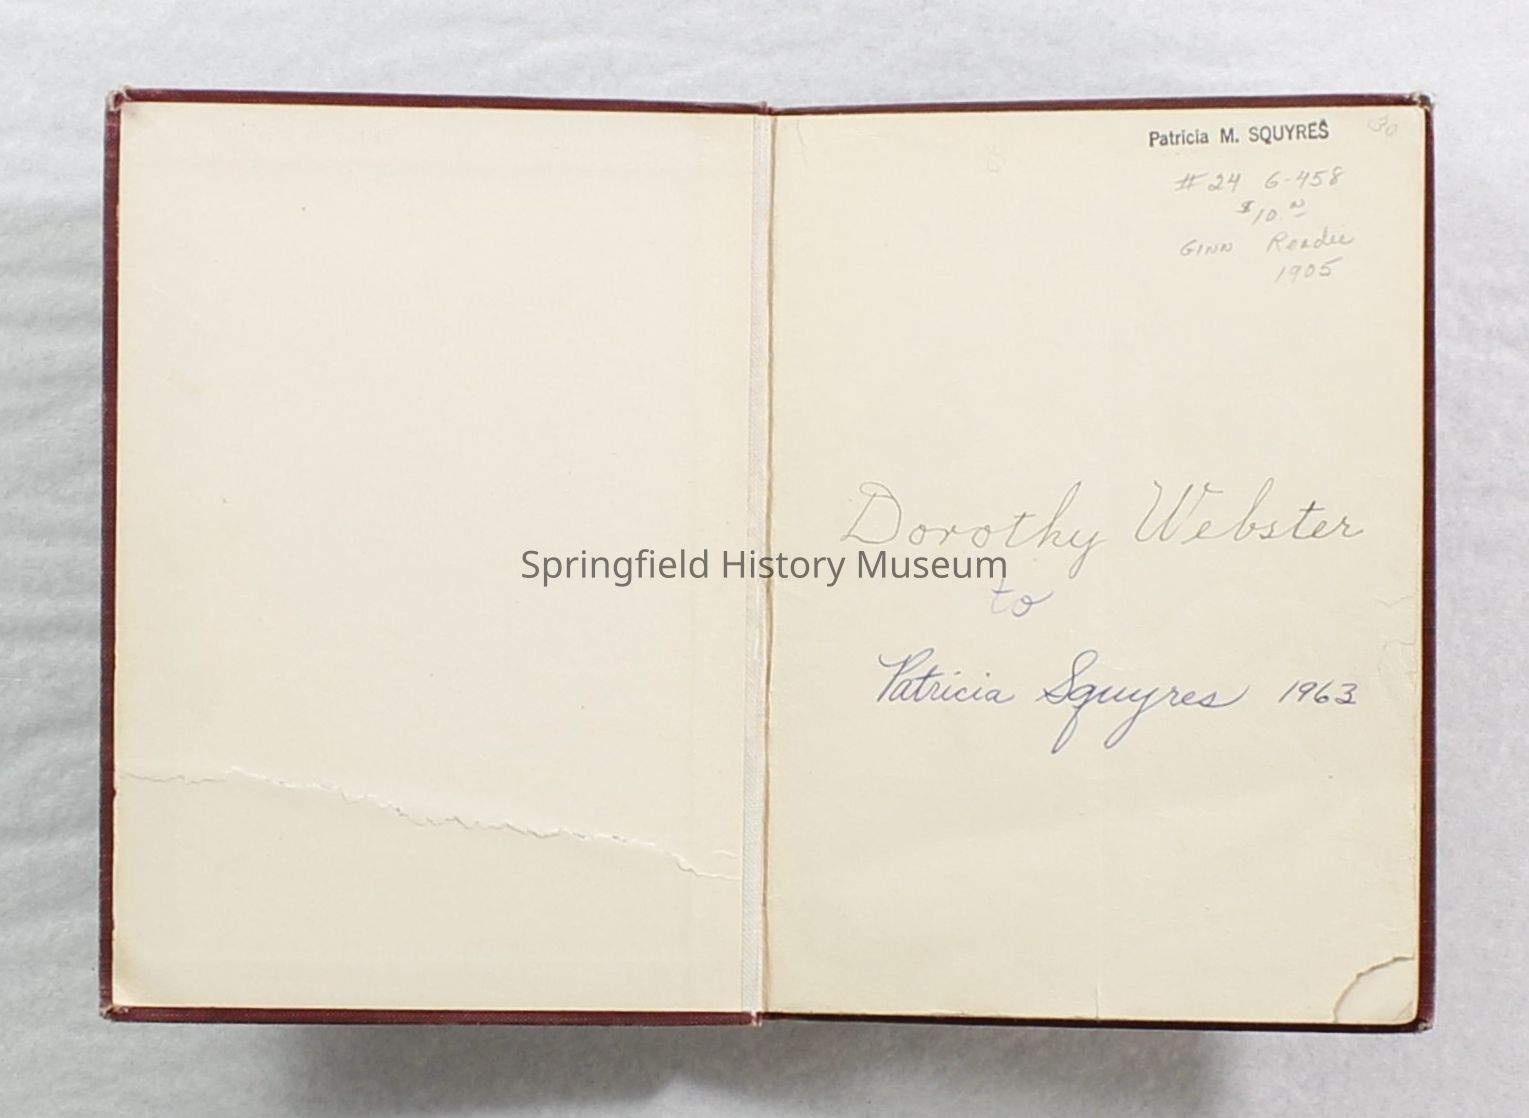 Patricia M. SQUYRES
#24 6-458
$10.
GINN Reader
1905
Dorothy Webster
Springfield History Museum
to
Patricia Squyres 1963